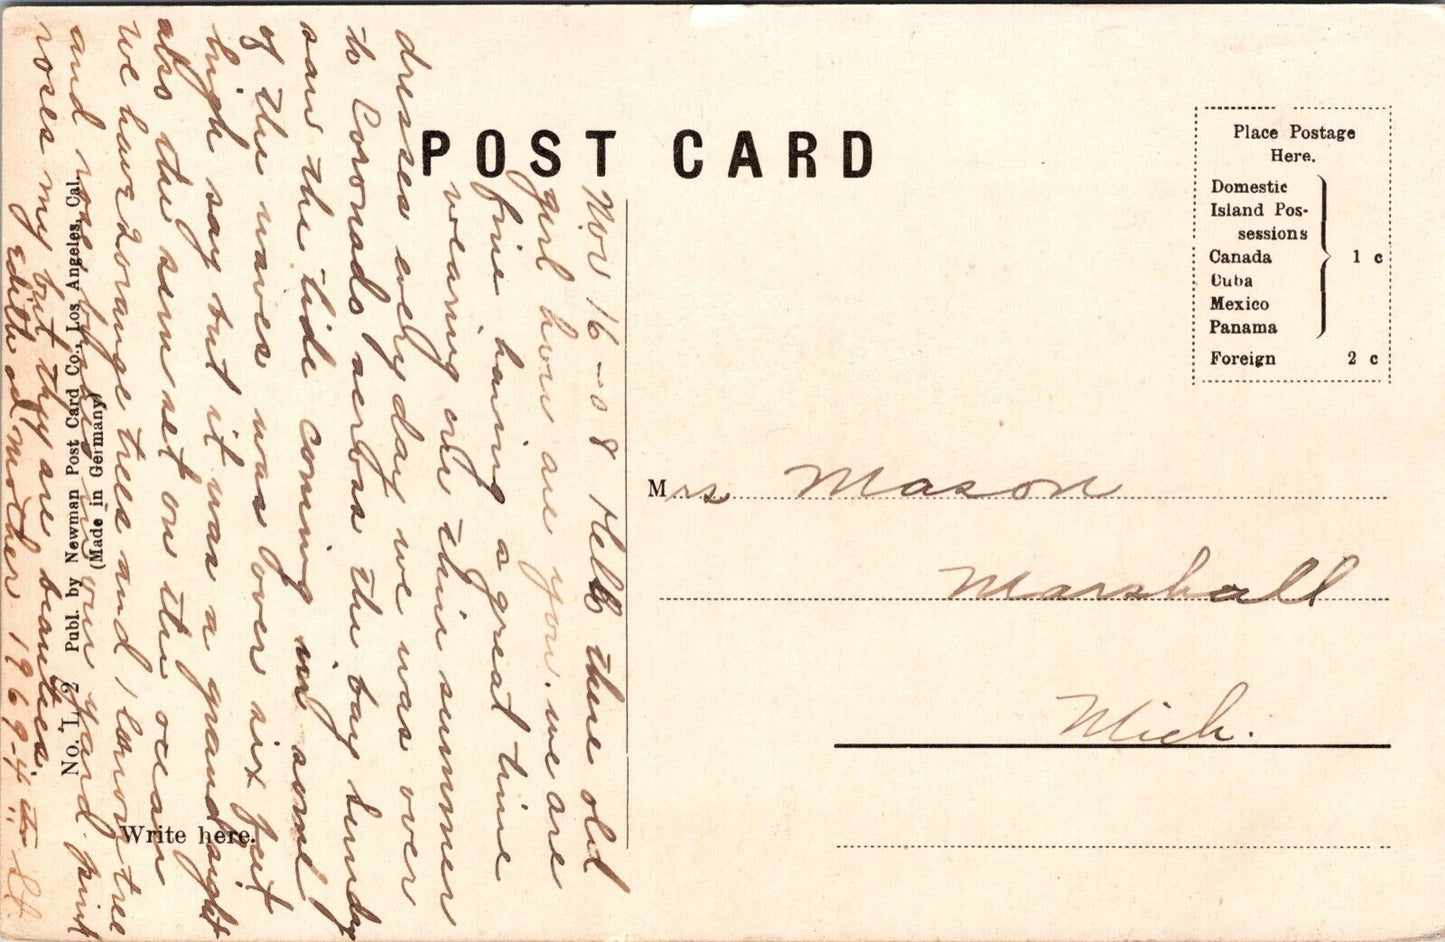 POST CARD
Place Postage
Here.
Domestic
Island Pos-
sessions
Canada
Cuba
Mexico
Panama
1 c
Foreign 2 c
Mrs Mason
Marshall
Mich.
Nov 16 - 08 Hello there old
girl how are you. we are
fine having a great time
wearing our thin summer
dresses every day we was over
to Coronado across the bay Sunday
saw the tide coming in some
of the waves was over six feet
high say but it was a grand sight
also the sun set on the ocean
we have 2 orange trees and 1 lemon tree
and rose in our yard pink
roses my but they are beauties
Edith and mother 1969-4th St.
No. L 2 Publ. by Newman Post Card Co., Los Angeles, Cal.
(Made in Germany)
Write here.